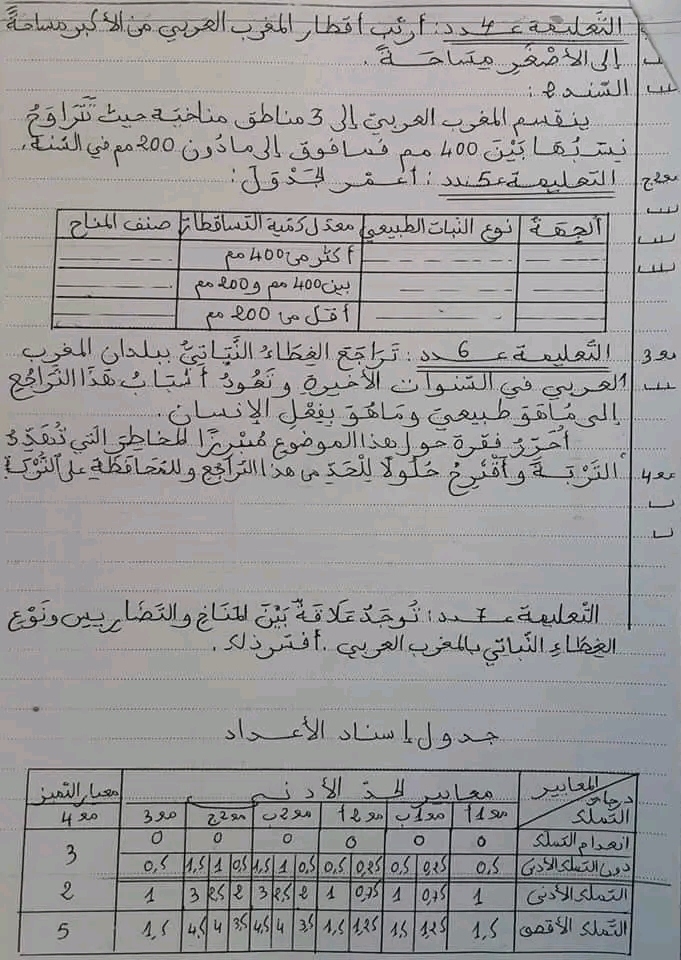 التّعليمة عـ4ـدد: أرتّب أقطار المغرب العربي من الأكبر مساحةً
إلى الأصْغَرِ مِسَاحَـةً.
السّند 2:
ينقسم المغرب العربيّ إلى 3 مناطق مناخيّة حيث تَتَرَاوَحُ
نسبُهَا بَيْنَ 400 مم فمافوق إلى مادُون 200 مم في السّنة.
مع2ج التعليمة عـ5ـدد: أعمّر الجَدْوَلَ:
الجِهَةُ نوع النّبات الطّبيعي معدّل كمّية التّساقطات صنف المناخ
أكثر من 400 مم
بين 400 مم و 200 مم
أقلّ من 200 مم
مع3 التّعليمة عـ6ـدد: تَرَاجَعَ الغِطَاءُ النّبَاتيُّ ببلدان المغرب
العربي في السّنوات الأخيرةِ وتَعُودُ أسْبَابُ هَذَا التّرَاجُعِ
إلى مَاهُوَ طبيعيّ ومَاهُوَ بِفِعْلِ الإنسان.
أُحَرِّرُ فقرة حول هذا الموضوع مُبْرِزًا المخاطِرَ التي تُهَدِّدُ
مع4 التّرْبَةَ وأقْتَرِحُ حُلُولًا لِلْحَدِّ من هذا التّراجع وللمُحَافَظَةِ على التُّرْبَةِ
التّعليمة عـ7ـدد: تُوجَدُ عَلَاقَةٌ بَيْنَ المَنَاخِ والتّضَاريس ونَوْعِ
الغِطَاءِ النَّبَاتِيّ بالمغرب العربي. أفسّر ذلك.
جدول إسناد الأعداد
المعايير معايير الحدّ الأدنى معيار التميز
درجات التملك مع1أ مع1ب مع2أ مع2ب مع2ج مع3 مع4
انعدام التملك 0 0 0 0 0 0
دون التملك الأدنى 0,5 0,25 0,5 0,25 0,5 0,5 1 1,5 0,5 1 1,5 0,5 3
التملك الأدنى 1 0,75 1 0,75 1 2 2,5 3 2 2,5 3 1 2
التملك الأقصى 1,5 1,25 1,5 1,25 1,5 3,5 4 4,5 3,5 4 4,5 1,5 5